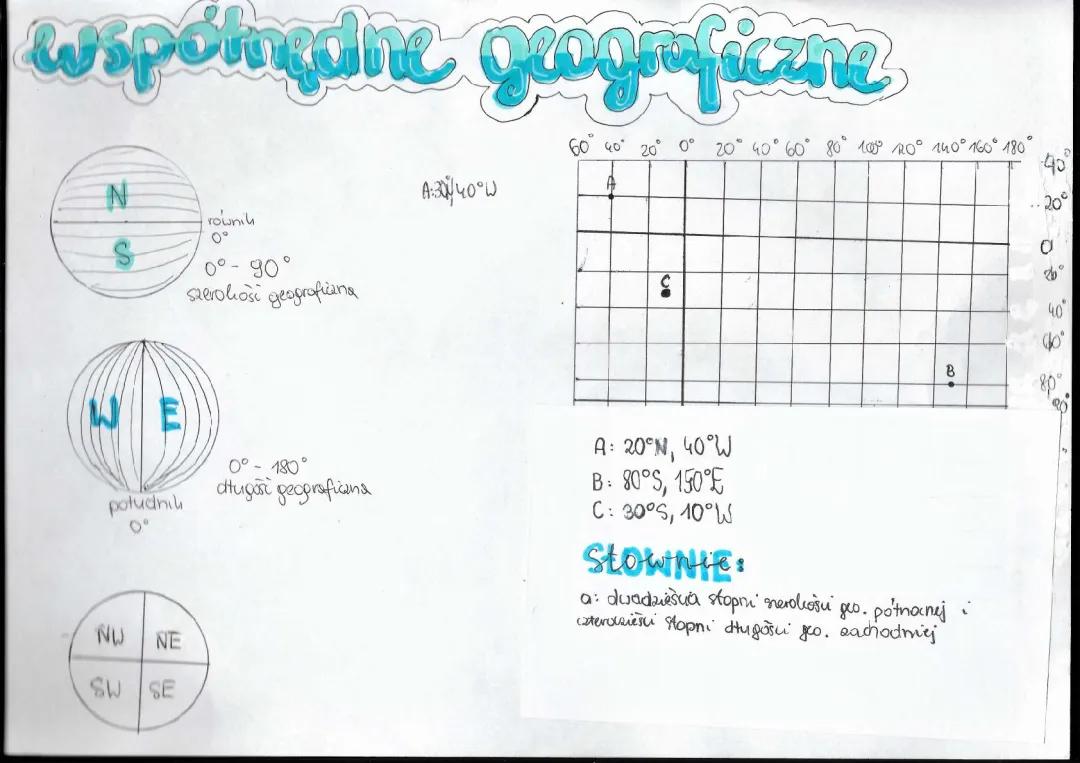 współrzędne geograficzne
N
S
równik
0°
0° - 90°
szerokość geograficzna
W E
południk
0°
0° - 180°
długość geograficzna
NW NE
SW SE
A: 40°W
60° 40° 20° 0° 20° 40° 60° 80° 100° 120° 140° 160° 180°
40°
20°
0
20°
40°
60°
80°
90°
A
C
B
A: 20°N, 40°W
B: 80°S, 150°E
C: 30°S, 10°W
SŁOWNIE:
a: dwadzieścia stopni szerokości geo. północnej i
czterdzieści stopni długości geo. zachodniej